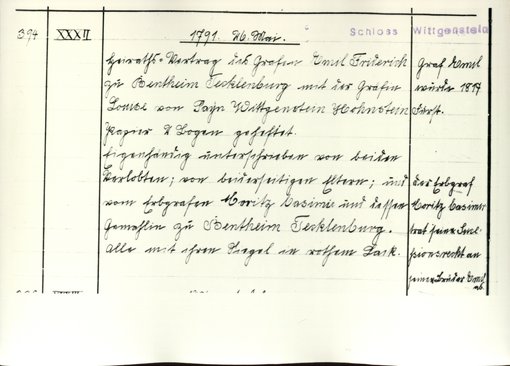 394 XXXII 1791. 26. Mai. Schloss Wittgenstein
Heiraths-Vertrag des Grafen Emil Frederick
zu Bentheim Tecklenburg mit der Gräfin
Louise von Sayn Wittgenstein Hohnstein
Papier 2 Bogen geheftet.
Eigenhändig unterschrieben von beiden
Verlobten; von beiderseitigen Eltern; und
vom Erbgrafen Moritz Casimir und dessen
Gemahlin zu Bentheim Tecklenburg.
Alle mit ihren Siegel in rothem Lack.
Graf Emil
wurde 1817
Fürst.
der Erbgraf
Moritz Casimir
trat seine
an
seinen Bruder Emil
ab.